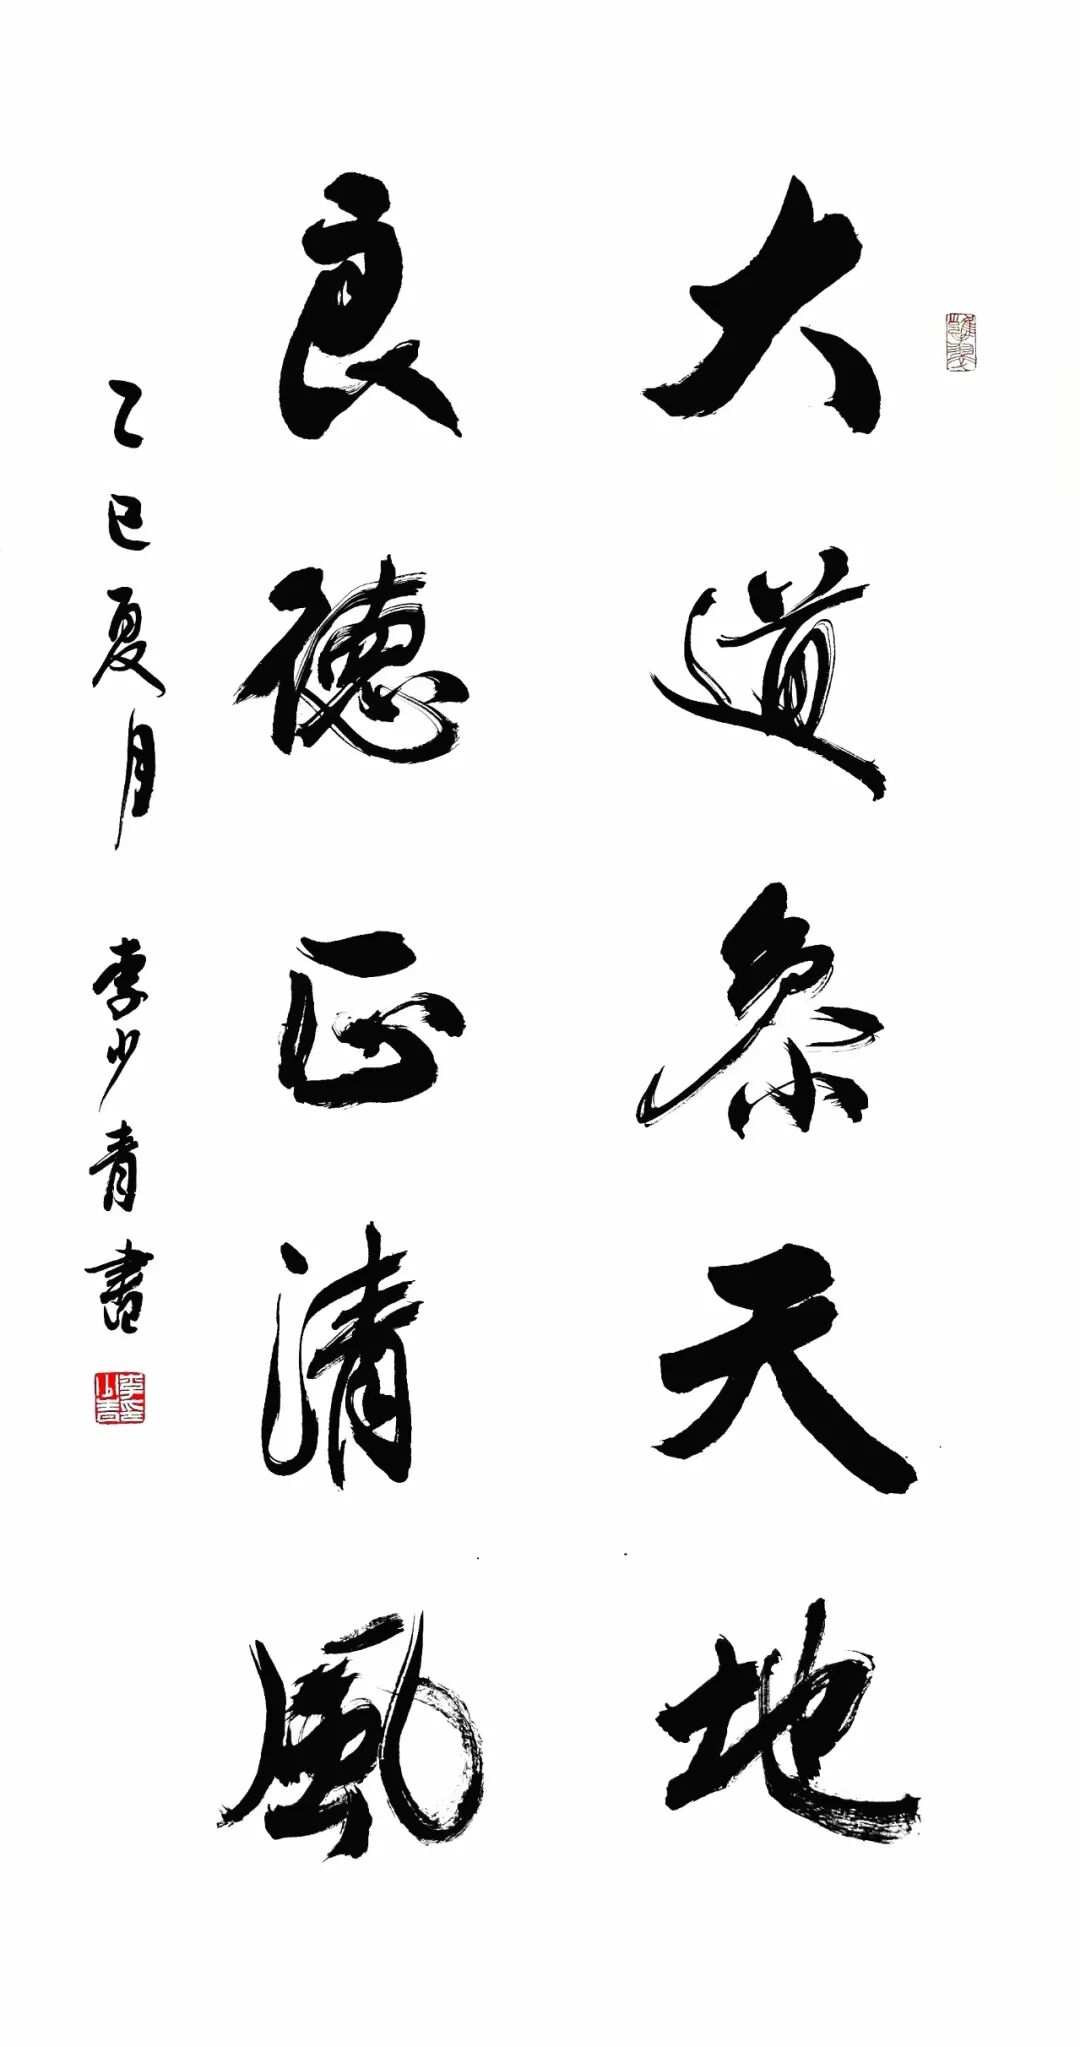 大道参天地
良德正清風
乙巳夏月 李少青書
李少青印